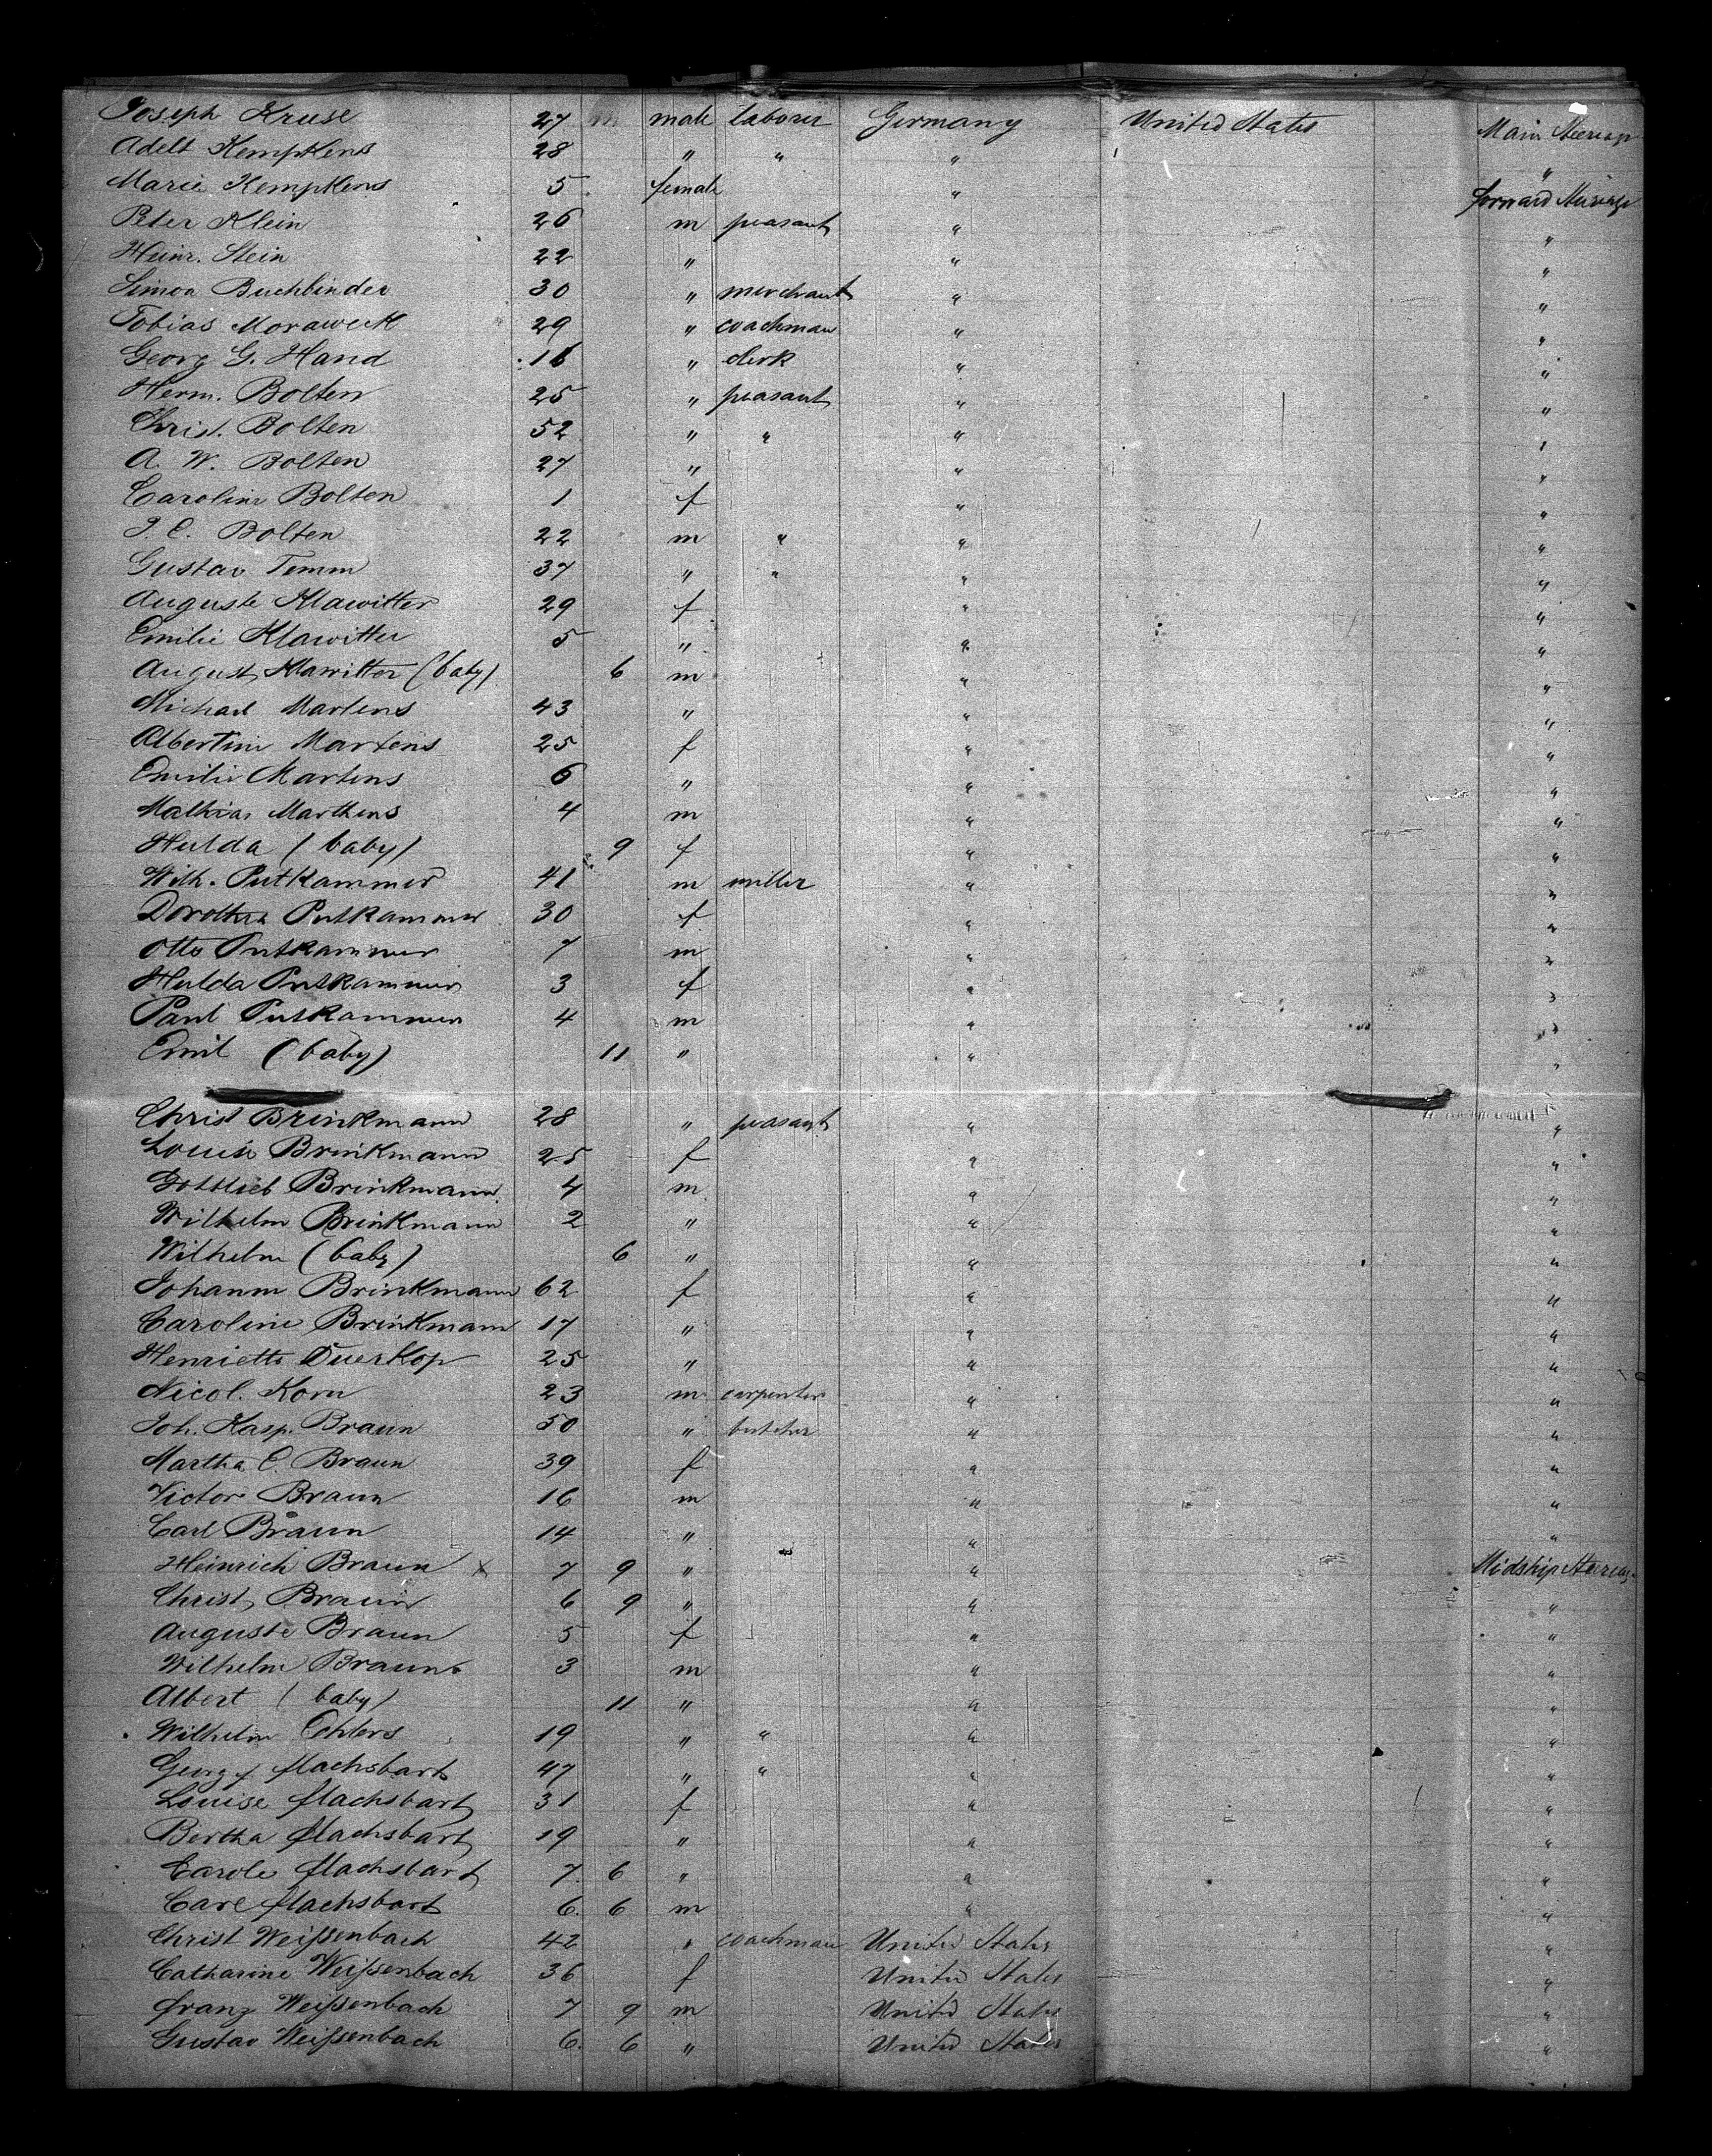 Joseph Kruse 27 m male laborer Germany United States Main Steerage
Adelt Kempkens 28 " " " "
Marie Kempkens 5 female " forward Steerage
Peter Klein 26 m peasant " "
Heinr. Stein 22 " " "
Simon Buchbinder 30 " merchant " "
Tobias Moraweck 29 " coachman " "
Georg G. Hand 16 " clerk " "
Herm. Bolten 25 " peasant " "
Christ. Bolten 52 " " " "
A. W. Bolten 27 " " "
Caroline Bolten 1 f " "
J. C. Bolten 22 m " " "
Gustav Temm 37 " " " "
Auguste Klawitter 29 f " "
Emilie Klawitter 5 " " "
August Klawitter (baby) 6 m " "
Michael Martens 43 " " "
Albertine Martens 25 f " "
Emilie Martens 6 " " "
Mathias Marthens 4 m " "
Hulda (baby) 9 f " "
Wilh. Putkammer 41 m miller " "
Dorothea Putkammer 30 f " "
Otto Putkammer 7 m " "
Hulda Putkammer 3 f " "
Paul Putkammer 4 m " "
Emil (baby) 11 " " "
Christ Brinkmann 28 " peasant " "
Louise Brinkmann 25 f " "
Gottlieb Brinkmann 4 m " "
Wilhelm Brinkmann 2 " " "
Wilhelm (baby) 6 " " "
Johanne Brinkmann 62 f " "
Caroline Brinkmann 17 " " "
Henriette Duerkop 25 " " "
Nicol. Korn 23 m carpenter " "
Joh. Kasp. Braun 50 " butcher " "
Martha C. Braun 39 f " "
Victor Braun 16 m " "
Carl Braun 14 " " "
Heinrich Braun x 7 9 " " Midship Steerage
Christ. Braun 6 9 " " "
Auguste Braun 5 f " "
Wilhelm Braun 3 m " "
Albert (baby) 11 " " "
Wilhelm Oehlers 19 " " " "
Georg flachsbart 47 " " " "
Louise flachsbart 31 f " "
Bertha flachsbart 19 " " "
Carole flachsbart 7 6 " " "
Carl flachsbart 6 6 m " "
Christ Weißenbach 42 " coachman United States "
Catharine Weißenbach 36 f United States "
franz Weißenbach 7 9 m United States "
Gustav Weißenbach 6 6 " United States "